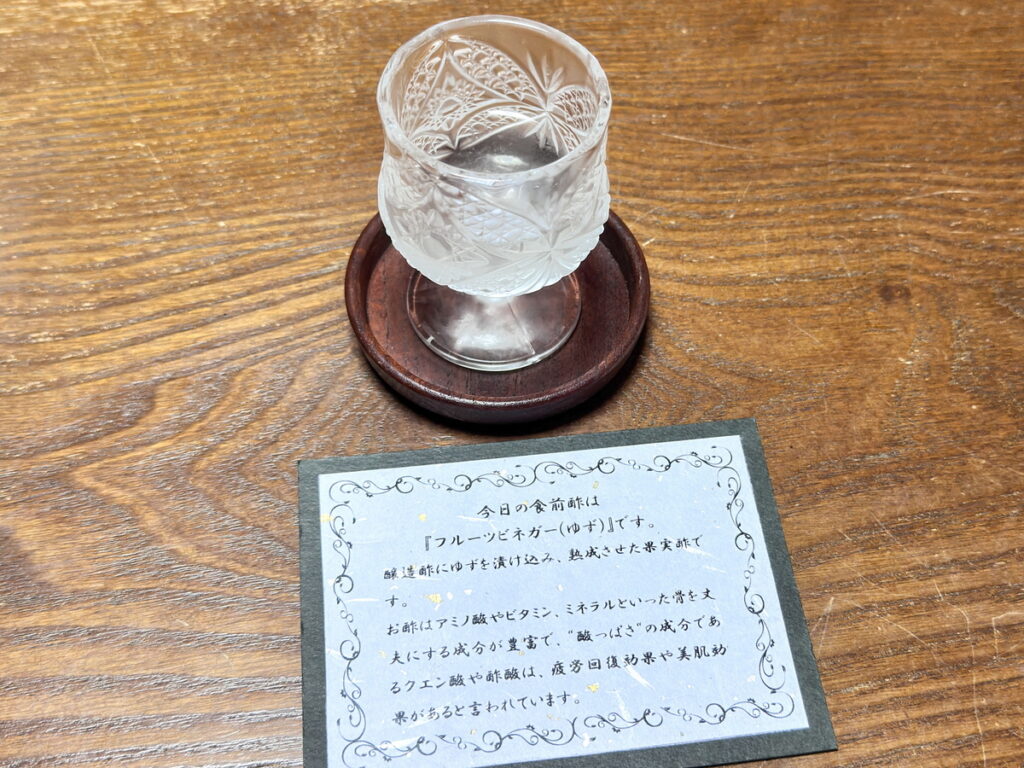 今日の食前酢は
『フルーツビネガー(ゆず)』です。
醸造酢にゆずを漬け込み、熟成させた果実酢で
す。
お酢はアミノ酸やビタミン、ミネラルといった骨を丈
夫にする成分が豊富で、“酸っぱさ”の成分であ
るクエン酸や酢酸は、疲労回復効果や美肌効
果があると言われています。